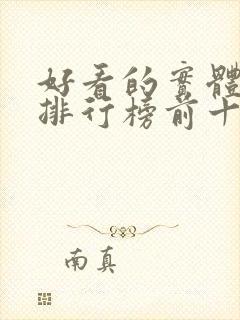 好看的實體
排行榜前十
南真